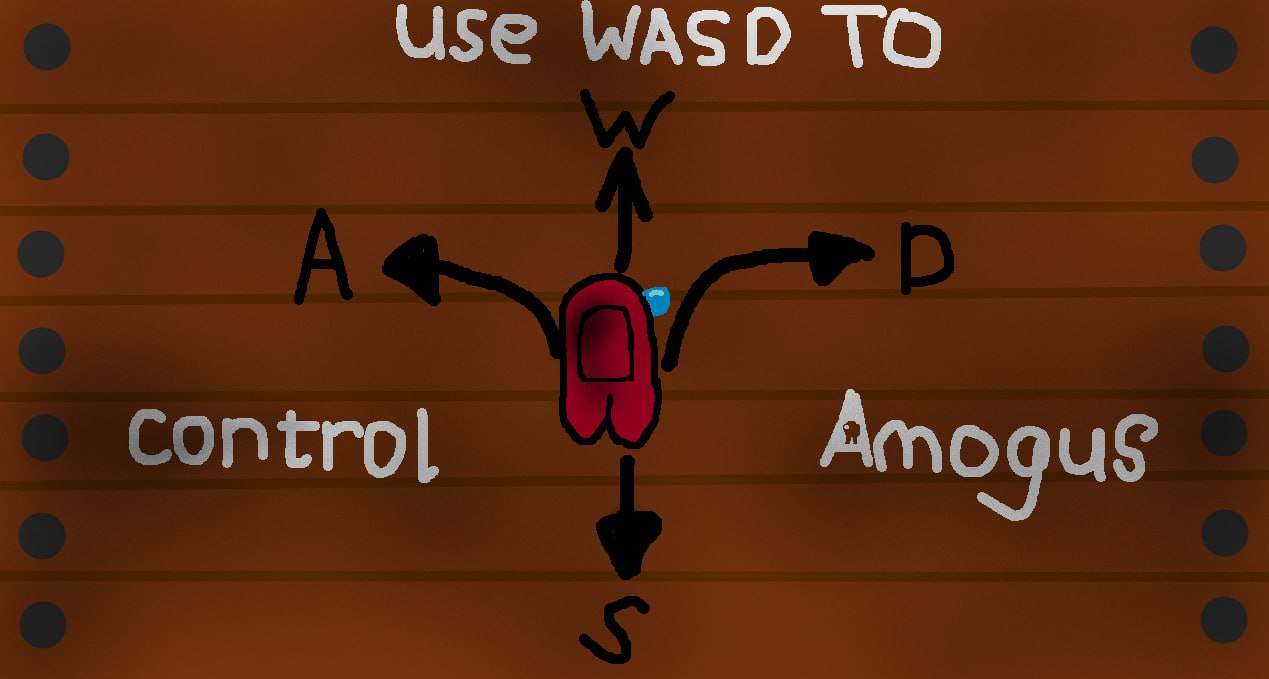 use WASD TO
W
A
D
control
Amogus
S